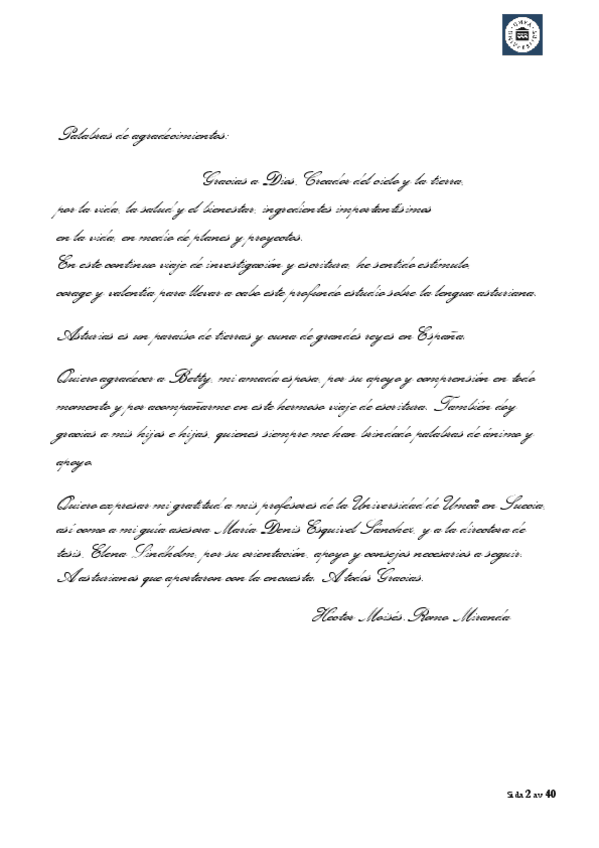 Palabras de agradecimientos:
Gracias a Dios, Creador del cielo y la tierra,
por la vida, la salud y el bienestar; ingredientes importantísimos
en la vida, en medio de planes y proyectos.
En este continuo viaje de investigación y escritura, he sentido estímulo,
corage y valentía para llevar a cabo este profundo estudio sobre la lengua asturiana.
Asturias es un paraíso de tierras y cuna de grandes reyes en España.
Quiero agradecer a Betty, mi amada esposa, por su apoyo y comprensión en todo
momento y por acompañarme en este hermoso viaje de escritura. También doy
gracias a mis hijos e hijas, quienes siempre me han brindado palabras de ánimo y
apoyo.
Quiero expresar mi gratitud a mis profesores de la Universidad de Umeå en Suecia,
así como a mi guía asesora María Denis Esquivel Sánchez, y a la directora de
tesis, Elena Lindholm, por su orientación, apoyo y consejos necesarios a seguir.
A asturianos que aportaron con la encuesta. A todos Gracias.
Héctor Moisés. Romo Miranda
Sida 2 av 40